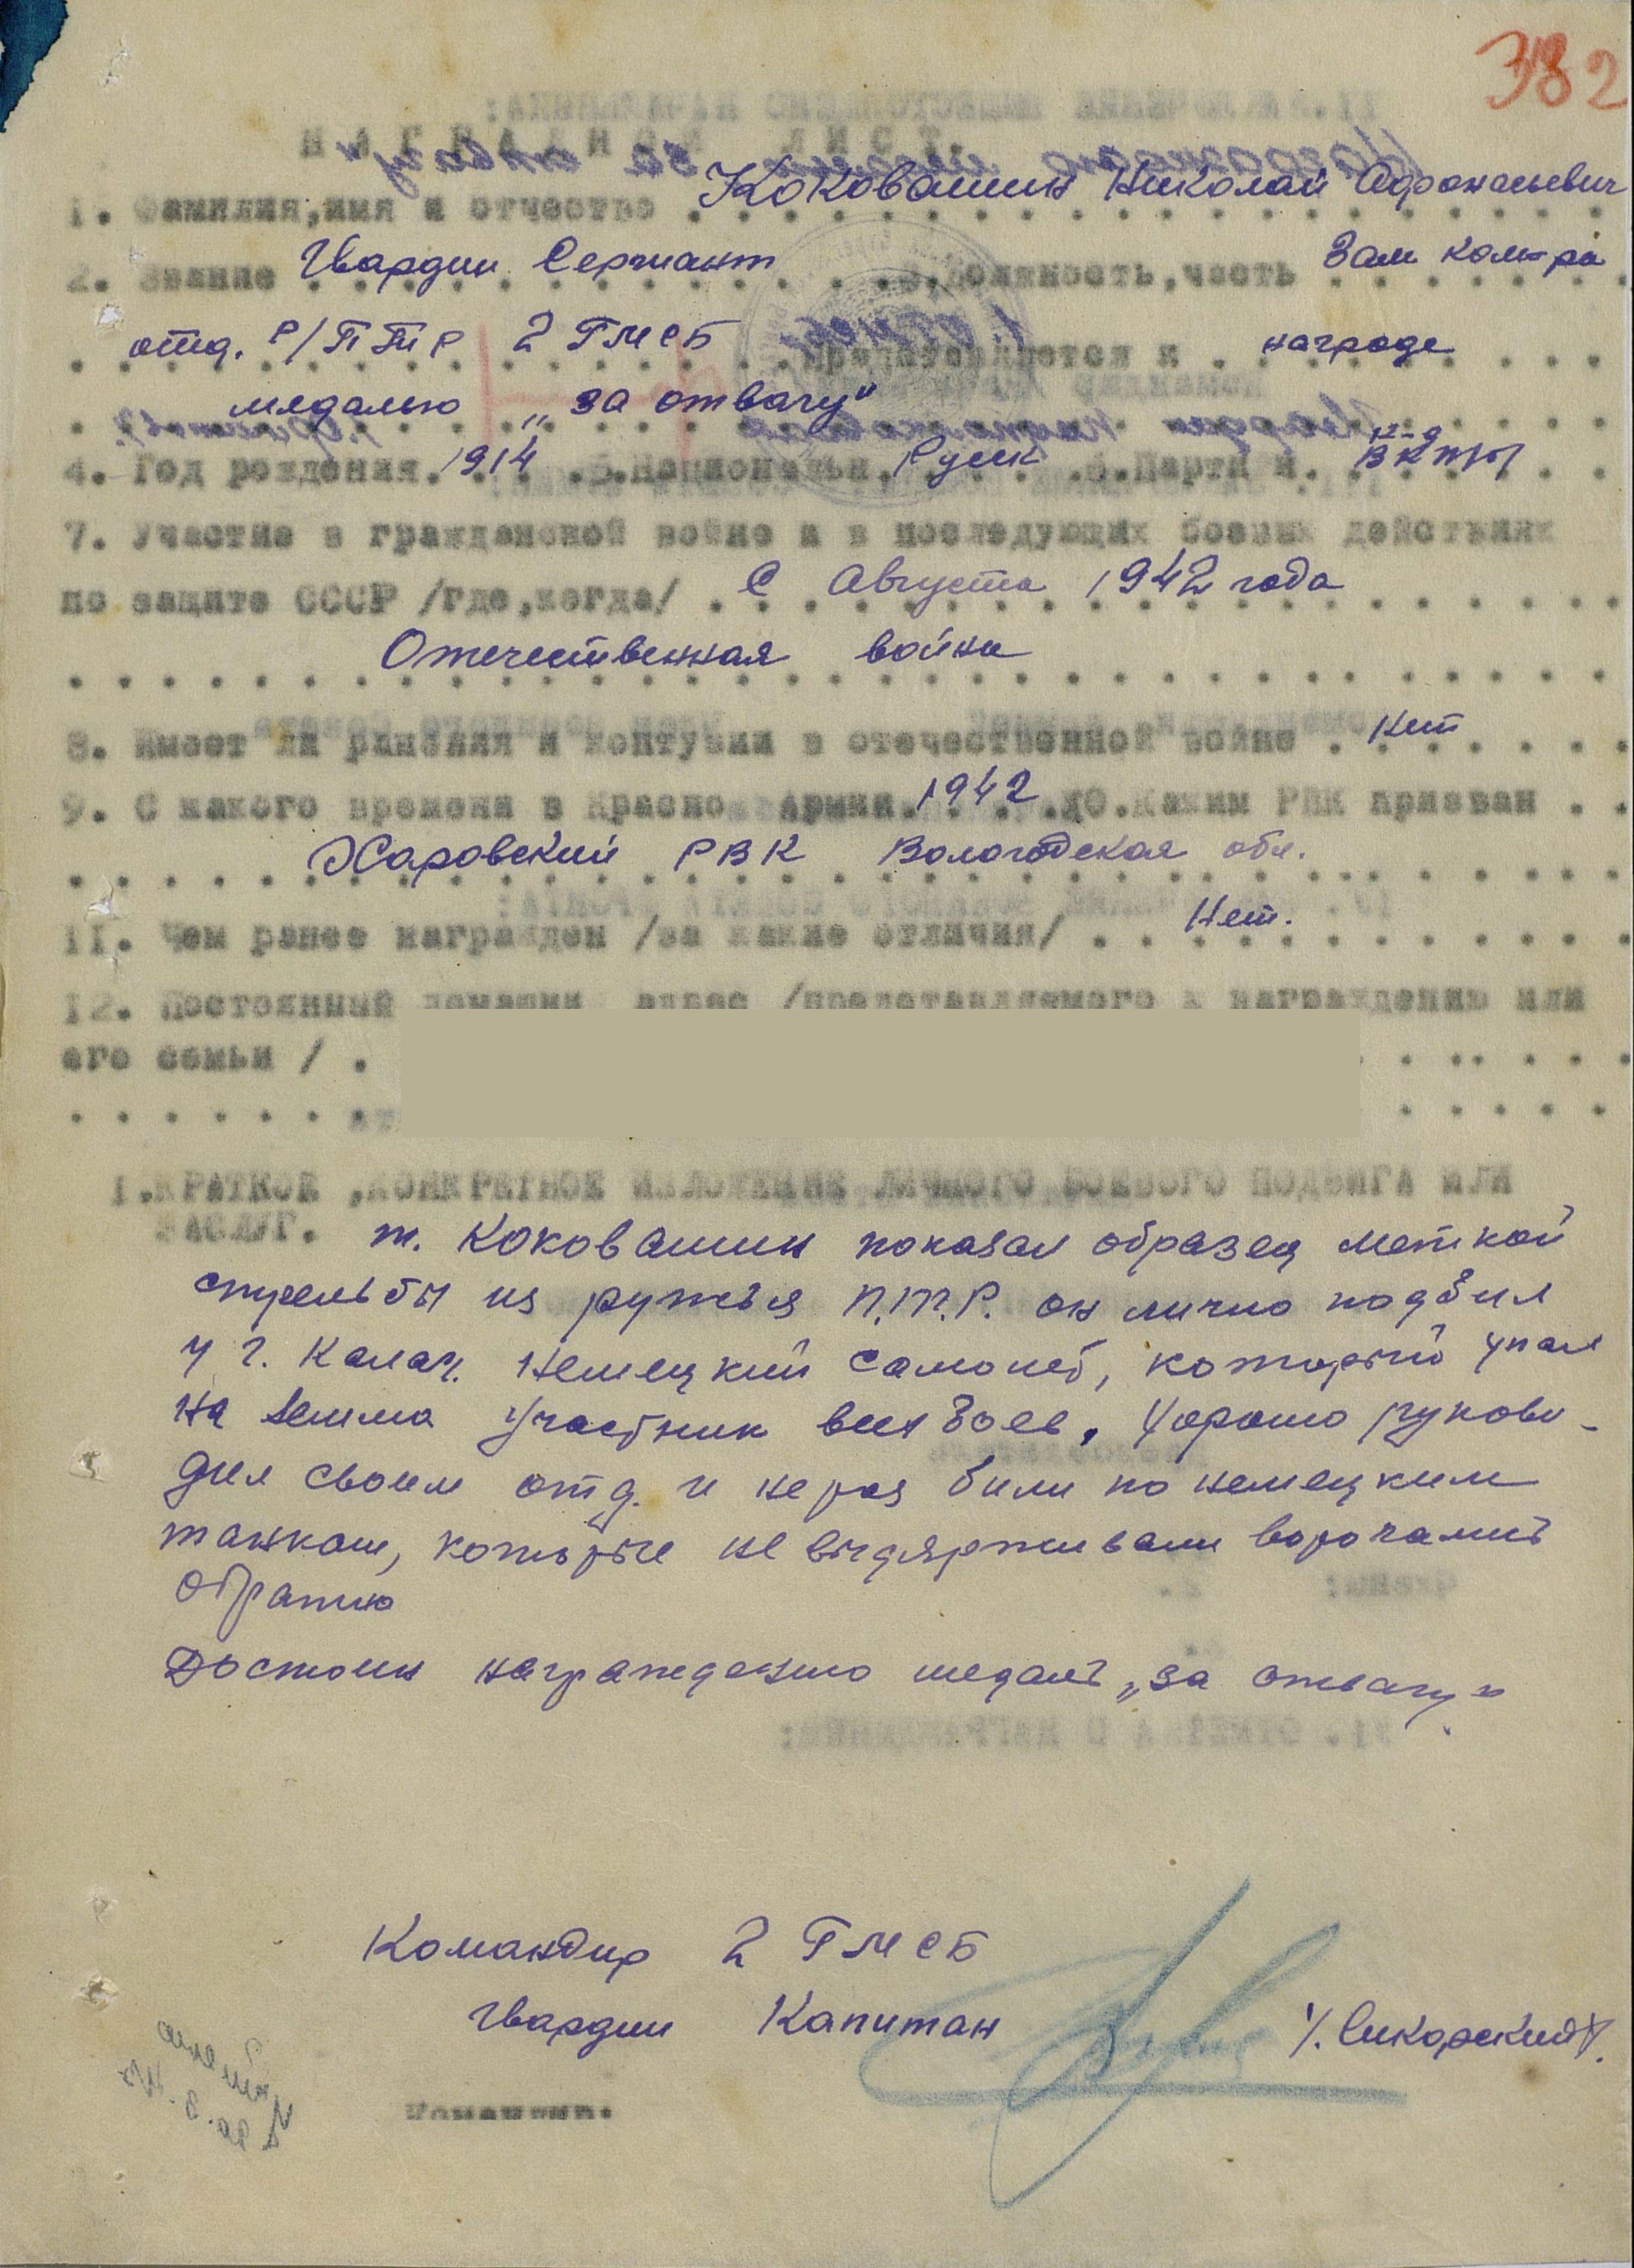 382
НАГРАДНОЙ ЛИСТ.
1. Фамилия,имя и отчество . Коковашин Николай Афанасьевич
2. Звание . Гвардии Сержант . Должность,часть . Зам ком-ра
отд. Р/ППТР 2 ГМСБ представляется к . награде
медалью „за отвагу"
4. Год рождения. 1914 .5.Национальн. Руск .6.Партий. к-д ВКП/б/
7. Участие в гражданской войне и в последующих боевых действиях
по защите СССР /где,когда/ . С Августа 1942 года
Отечественная война
8. Имеет ли ранения и контузии в отечественной войне . Нет
9. С какого времени в Красной Армии. 1942 .10.Каким РВК призван . .
Харовский РВК Вологодская обл.
11. Чем ранее награжден /за какие отличия/ . Нет.
12. Постоянный домашний адрес /представляемого к награждению или
его семьи / .
1.КРАТКОЕ ,КОНКРЕТНОЕ ИЗЛОЖЕНИЕ ЛИЧНОГО БОЕВОГО ПОДВИГА ИЛИ
ЗАСЛУГ. т. Коковашин показал образец меткой
стрельбы из ружья П.Т.Р. он лично подбил
у г. Калач. Немецкий самолеб, который упал
на землю Участник всех боев. Хорошо руково-
дил своим отд. и не раз били по немецким
танкам, которые не выдярживали ворочались
обратно
Достоин награждению медаль „за отвагу"
Командир 2 ГМСБ
Гвардии Капитан /Сикорский/.
Командир: